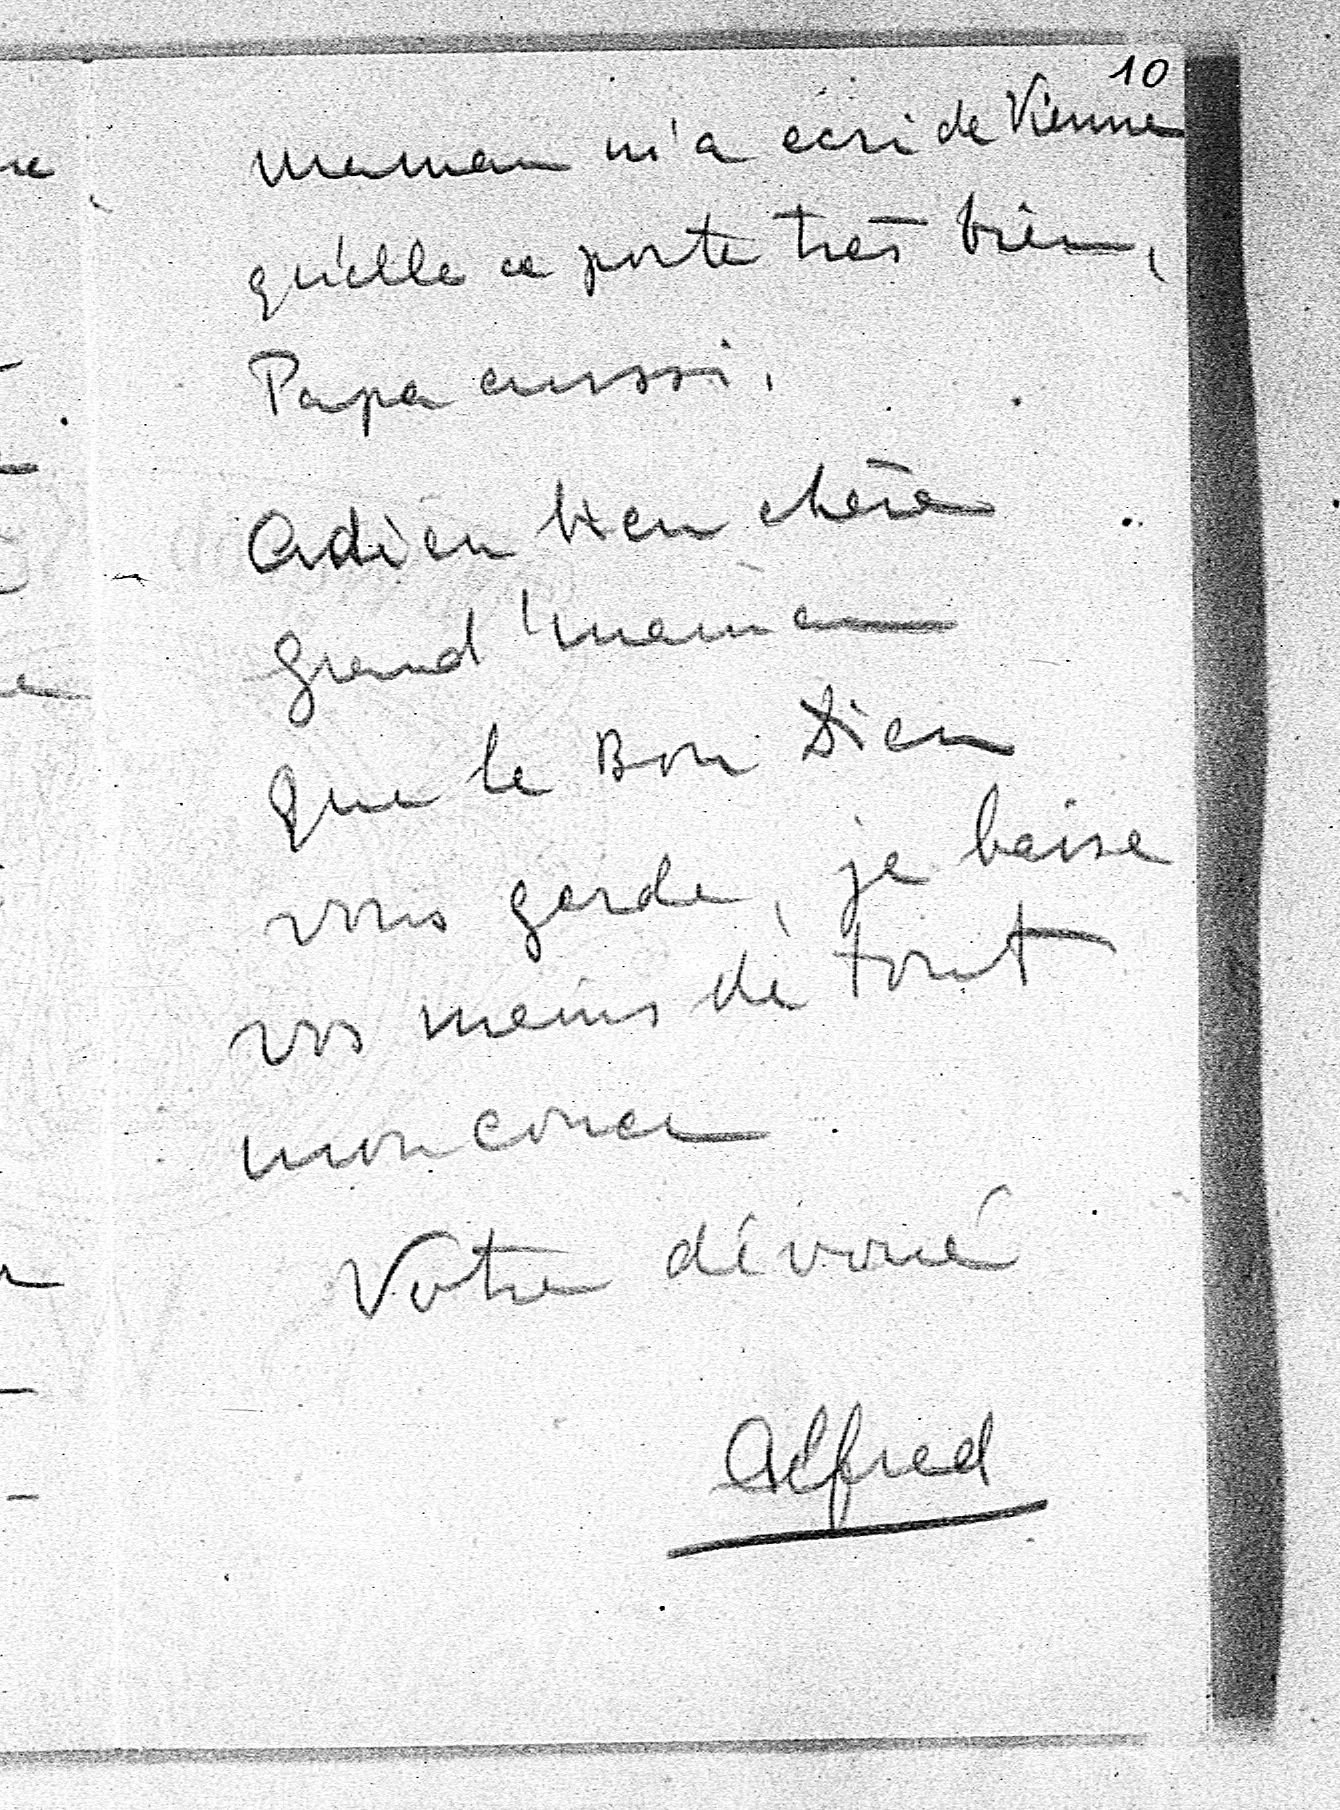 10
maman m'a ecri de Vienne
qu'elle ce porte très bien,
Papa aussi.
Adieu bien chère
grand'maman
que le Bon Dieu
vous garde, je baise
vos mains de tout
mon coeur
Votre dévoué
Alfred